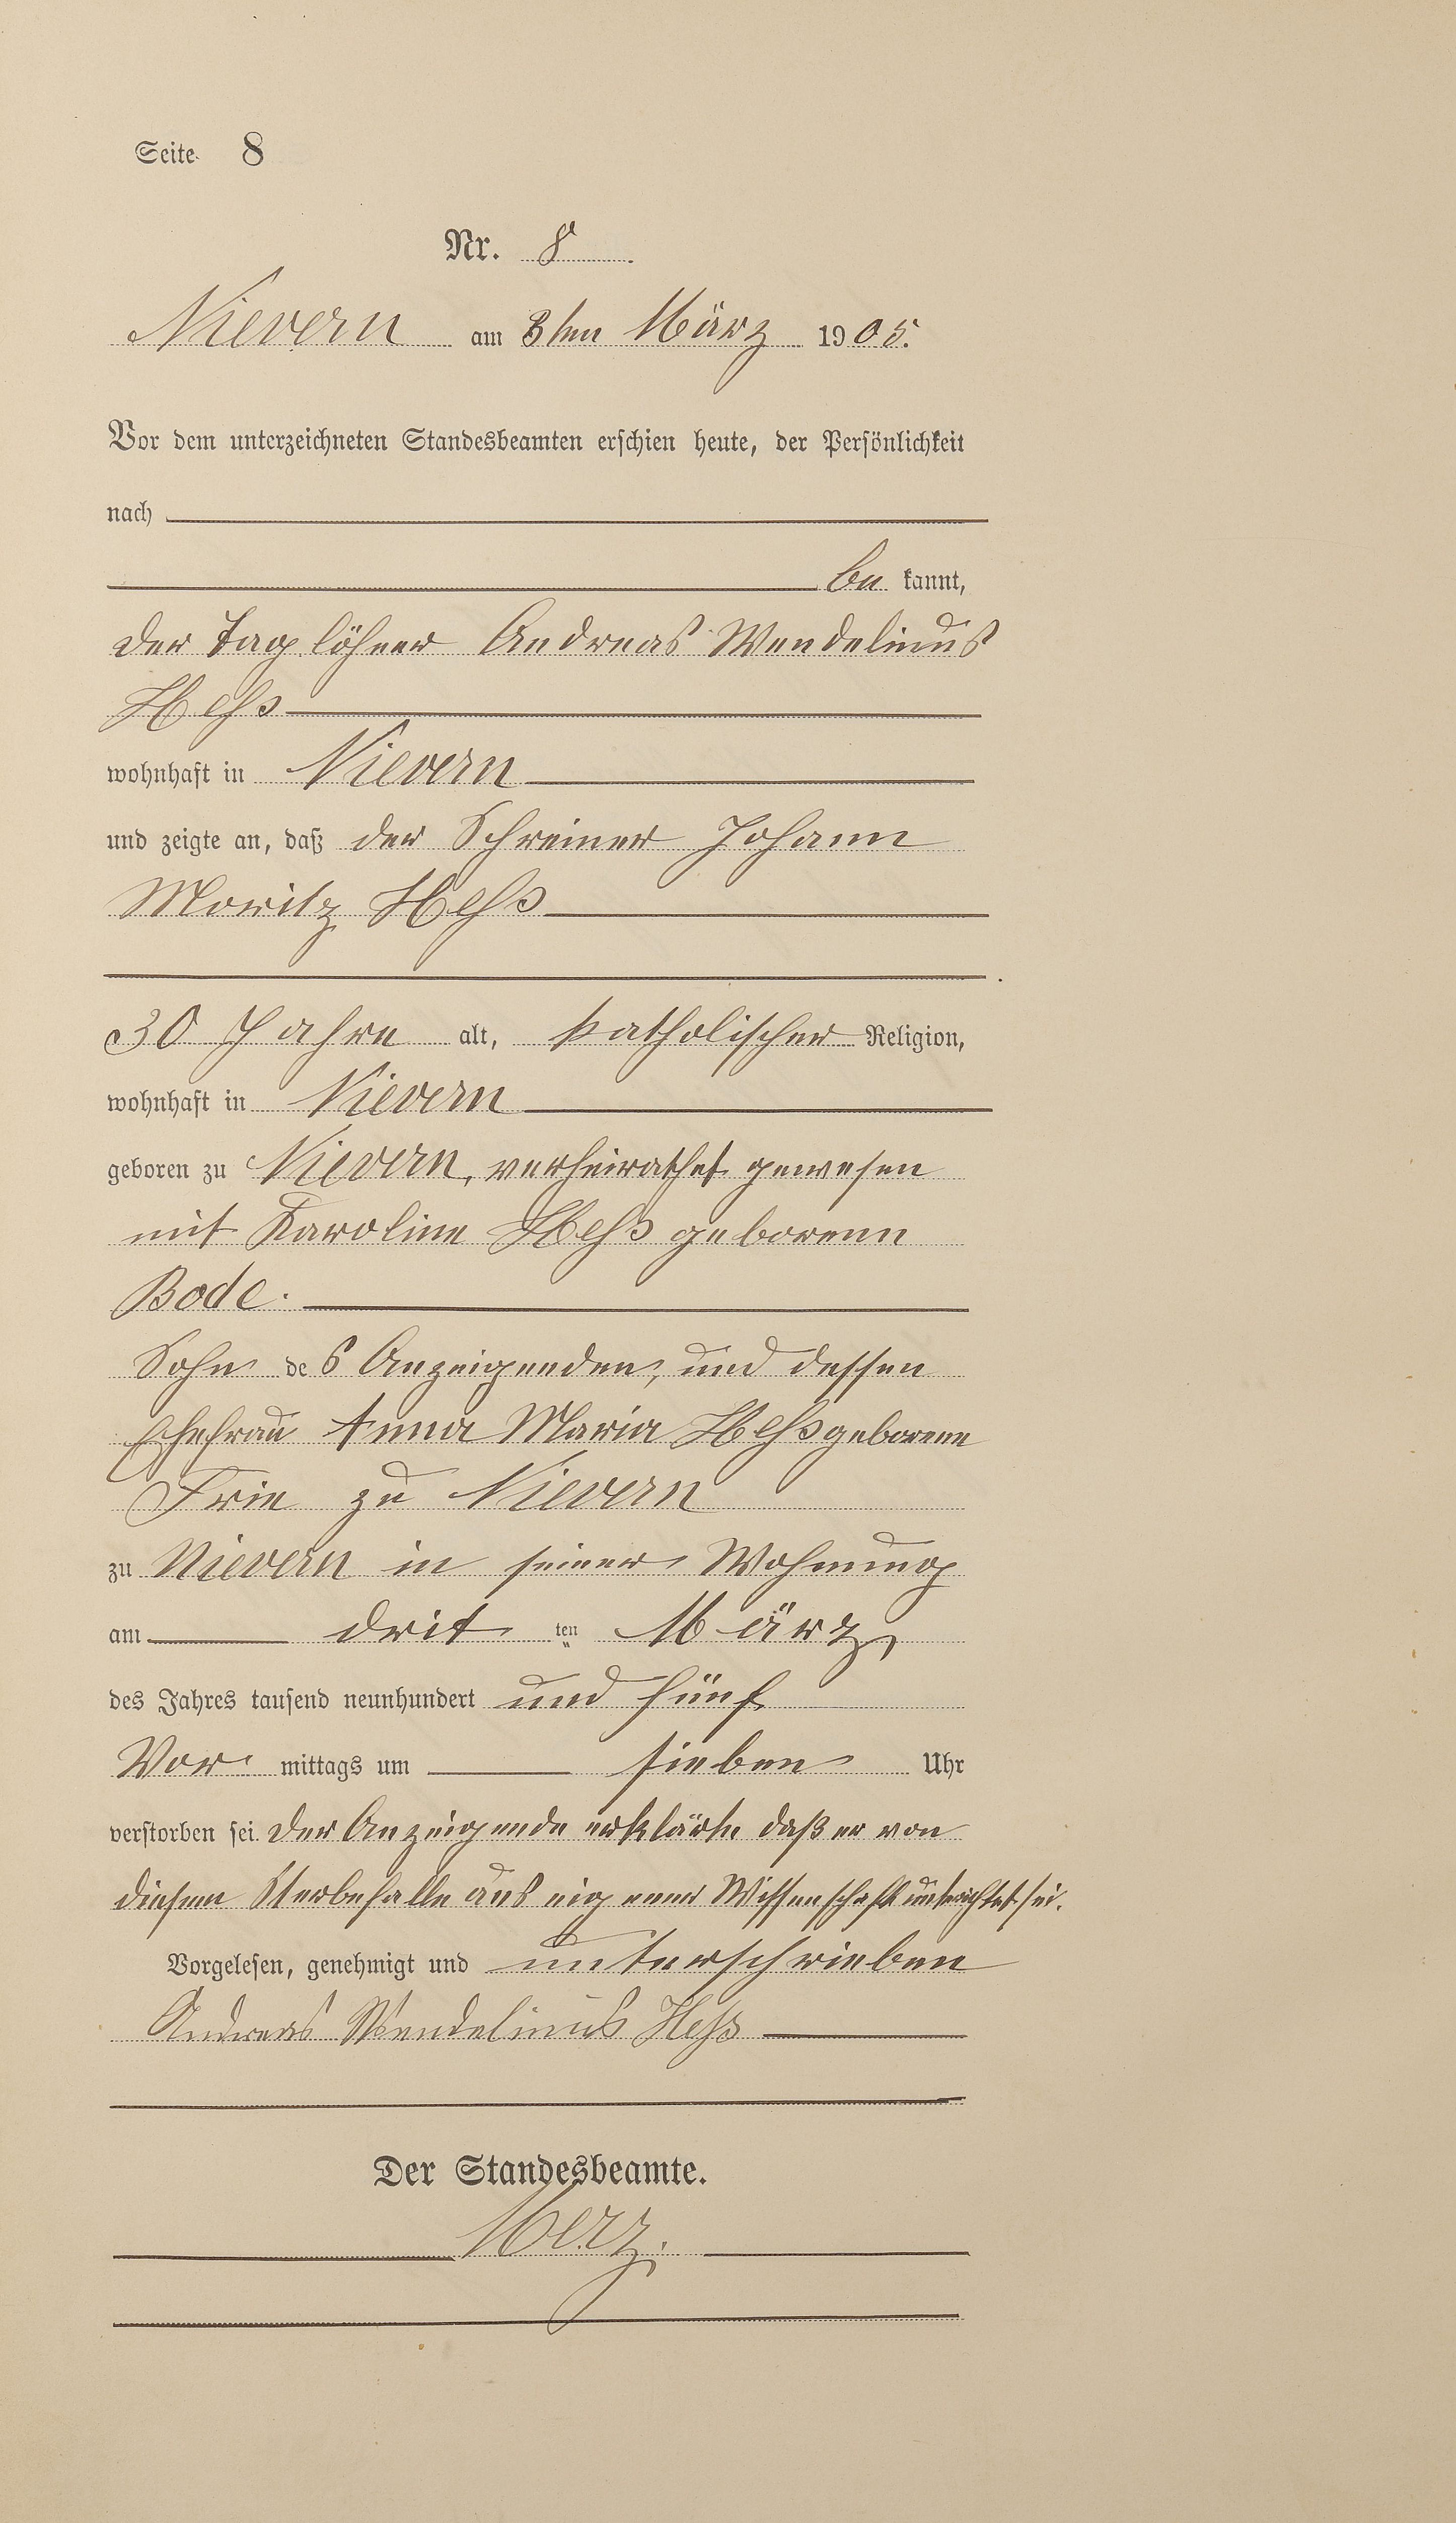 Seite 8
Nr. 8.
Nievern am 3ten März 1905.
Vor dem unterzeichneten Standesbeamten erschien heute, der Persönlichkeit
nach
be kannt,
der Taglöhner Andreas Wendelinus
Heß
wohnhaft in Nievern
und zeigte an, daß der Schreiner Johann
Moritz Heß
30 Jahre alt, katholischer Religion,
wohnhaft in Nievern
geboren zu Nievern, verheirathet gewesen
mit Karoline Heß geborene
Bode.
Sohn des Anzeigenden, und dessen
Ehefrau Anna Maria Heß geborene
zu Nievern
zu Nievern in seiner Wohnung
am drit ten März,
des Jahres tausend neunhundert und fünf
Vor mittags um sieben Uhr
verstorben sei. Der Anzeigende erklärte daß er von
diesem Sterbefalle aus eigener Wissenschaft unterrichtet sei.
Vorgelesen, genehmigt und unterschrieben
Andreas Wendelinus Heß
Der Standesbeamte.
Merz.